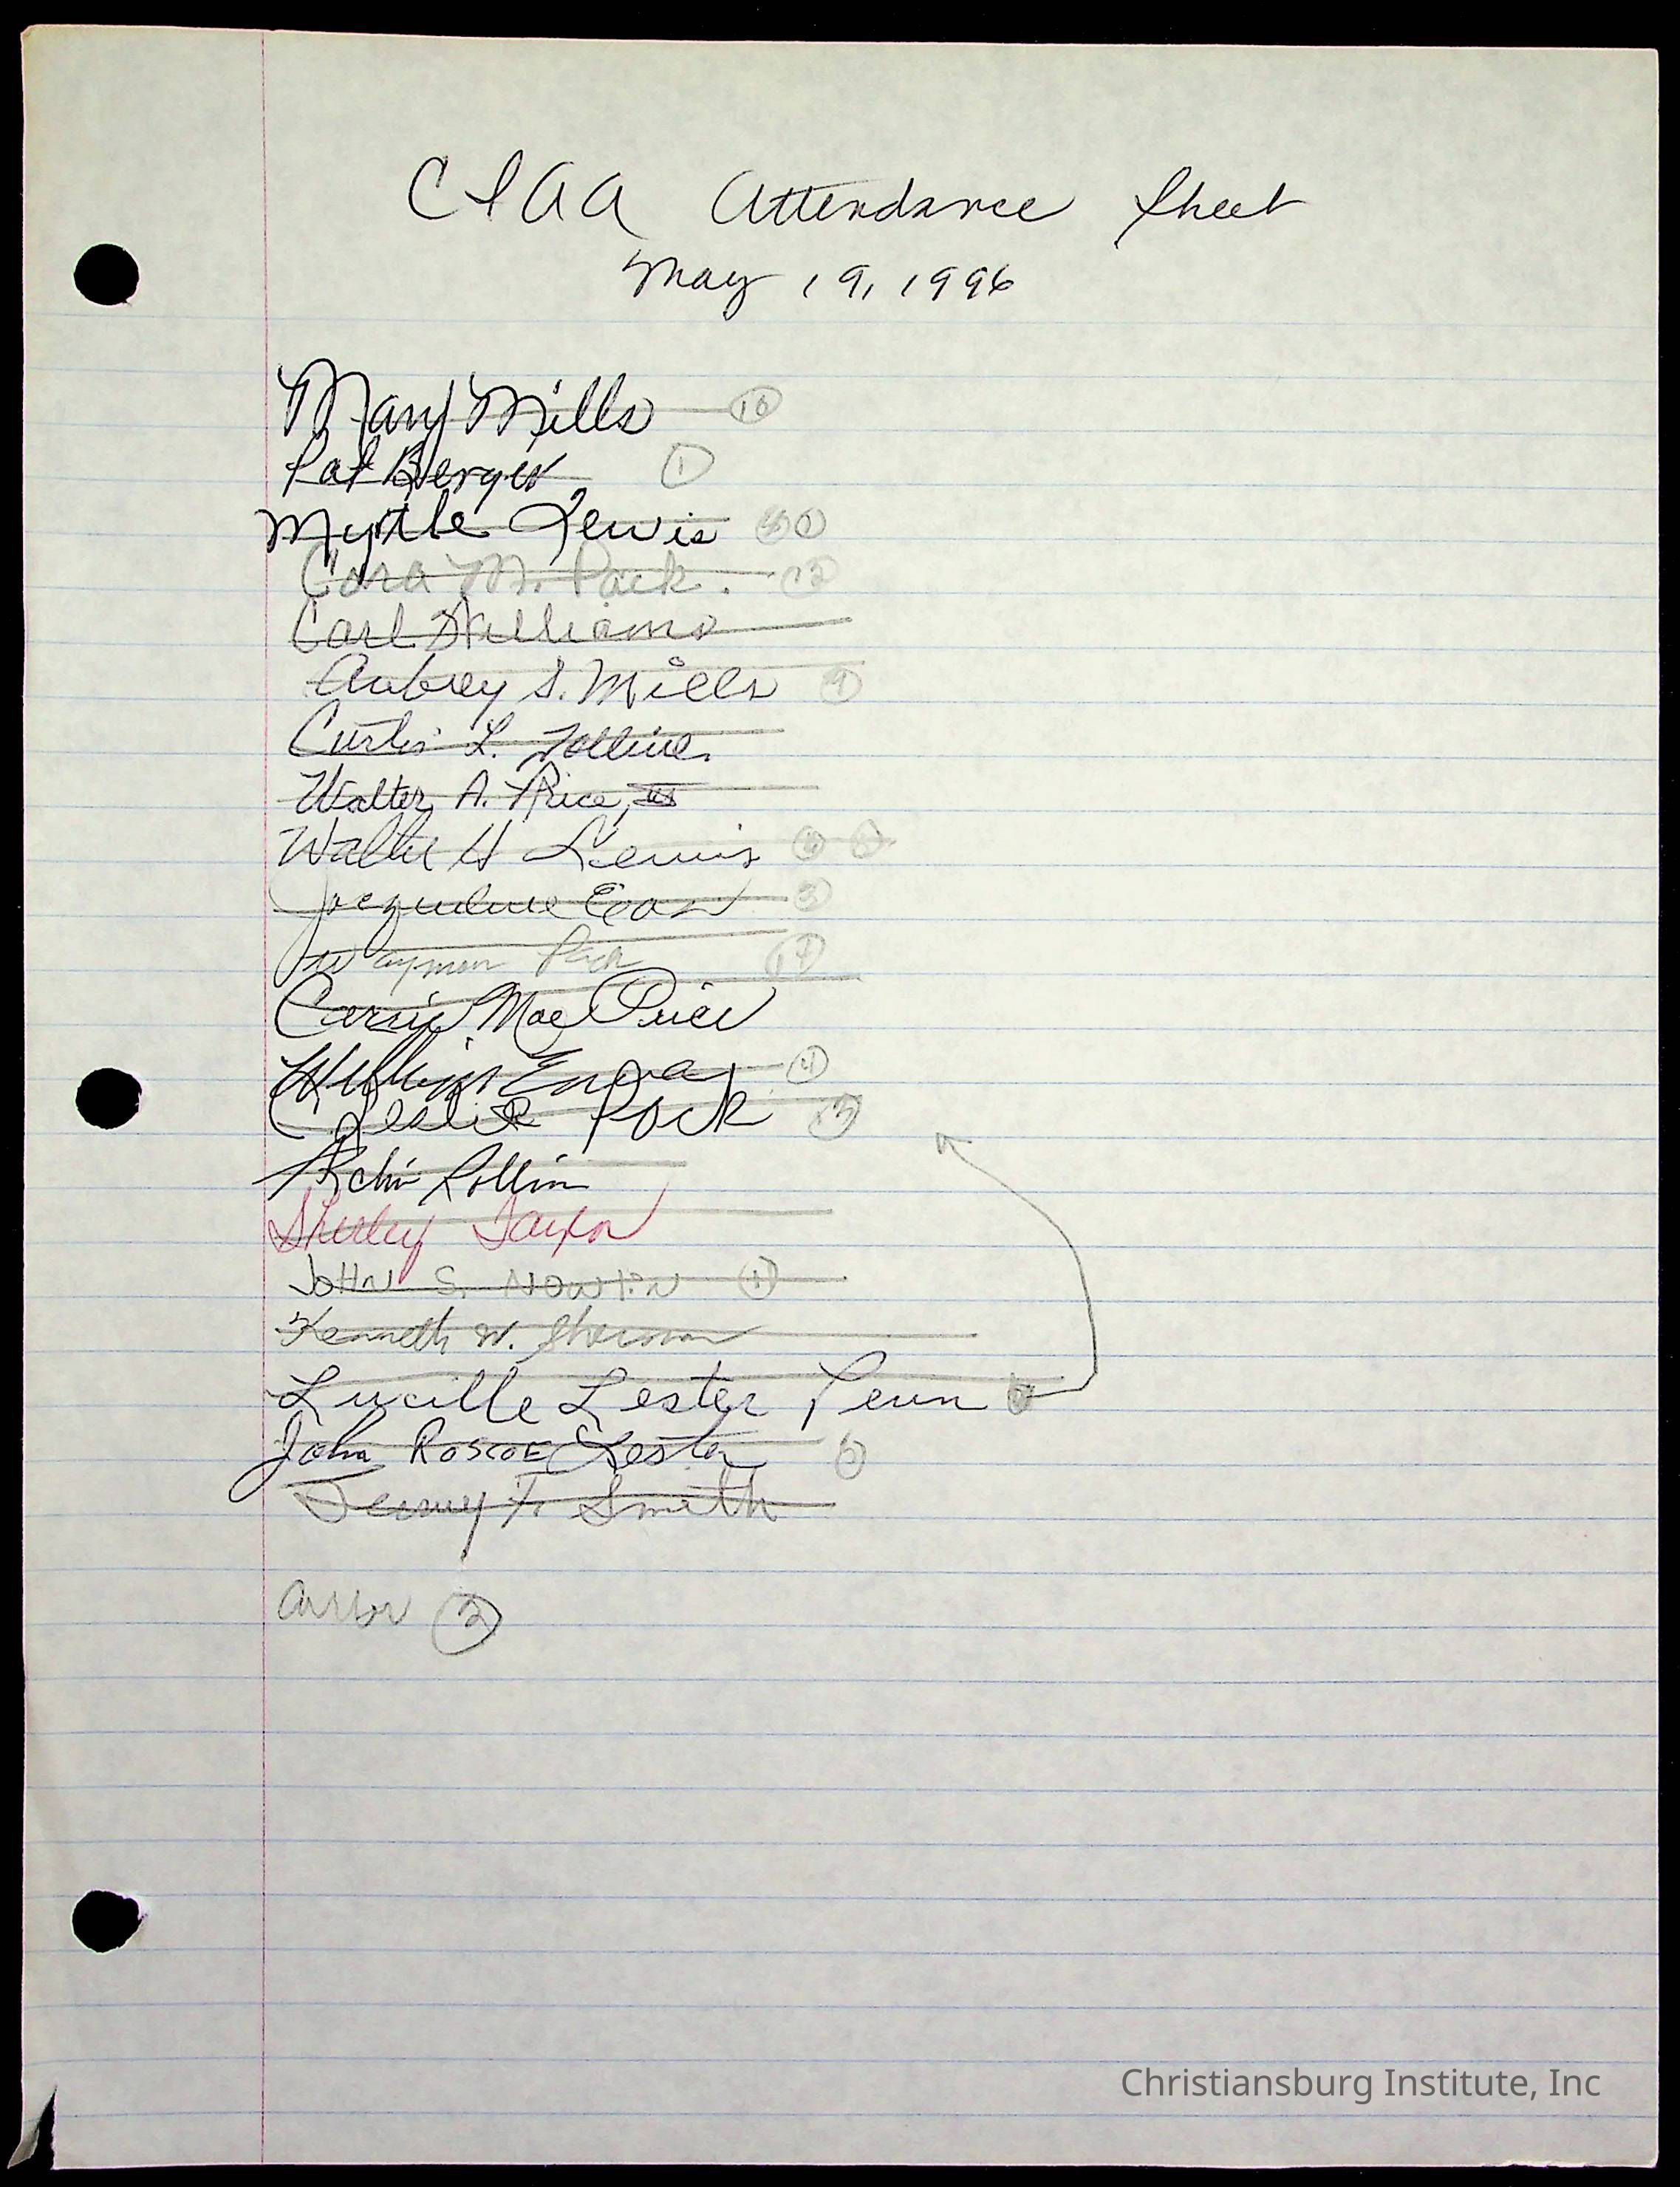 CIAA Attendance Sheet
May 19, 1996
Mary Mills 10
Pat Berger 1
Myrtle Lewis
Cora M. Pack.
Carl Williams
Aubrey S. Mills 9
Curtis L.
Walter A. Price, III
Walter H Lewis
Jacqueline Eaves 3
Wayman Pack
Carrie Mae Price
William 4
C. Leslie Pack 13
Archie Rollins
Shirley Saxon
John S. Nowlin 1
Kenneth W. Sherman
Lucille Lester Penn
John Roscoe Lester
Jenny F. Smith
2
Christiansburg Institute, Inc